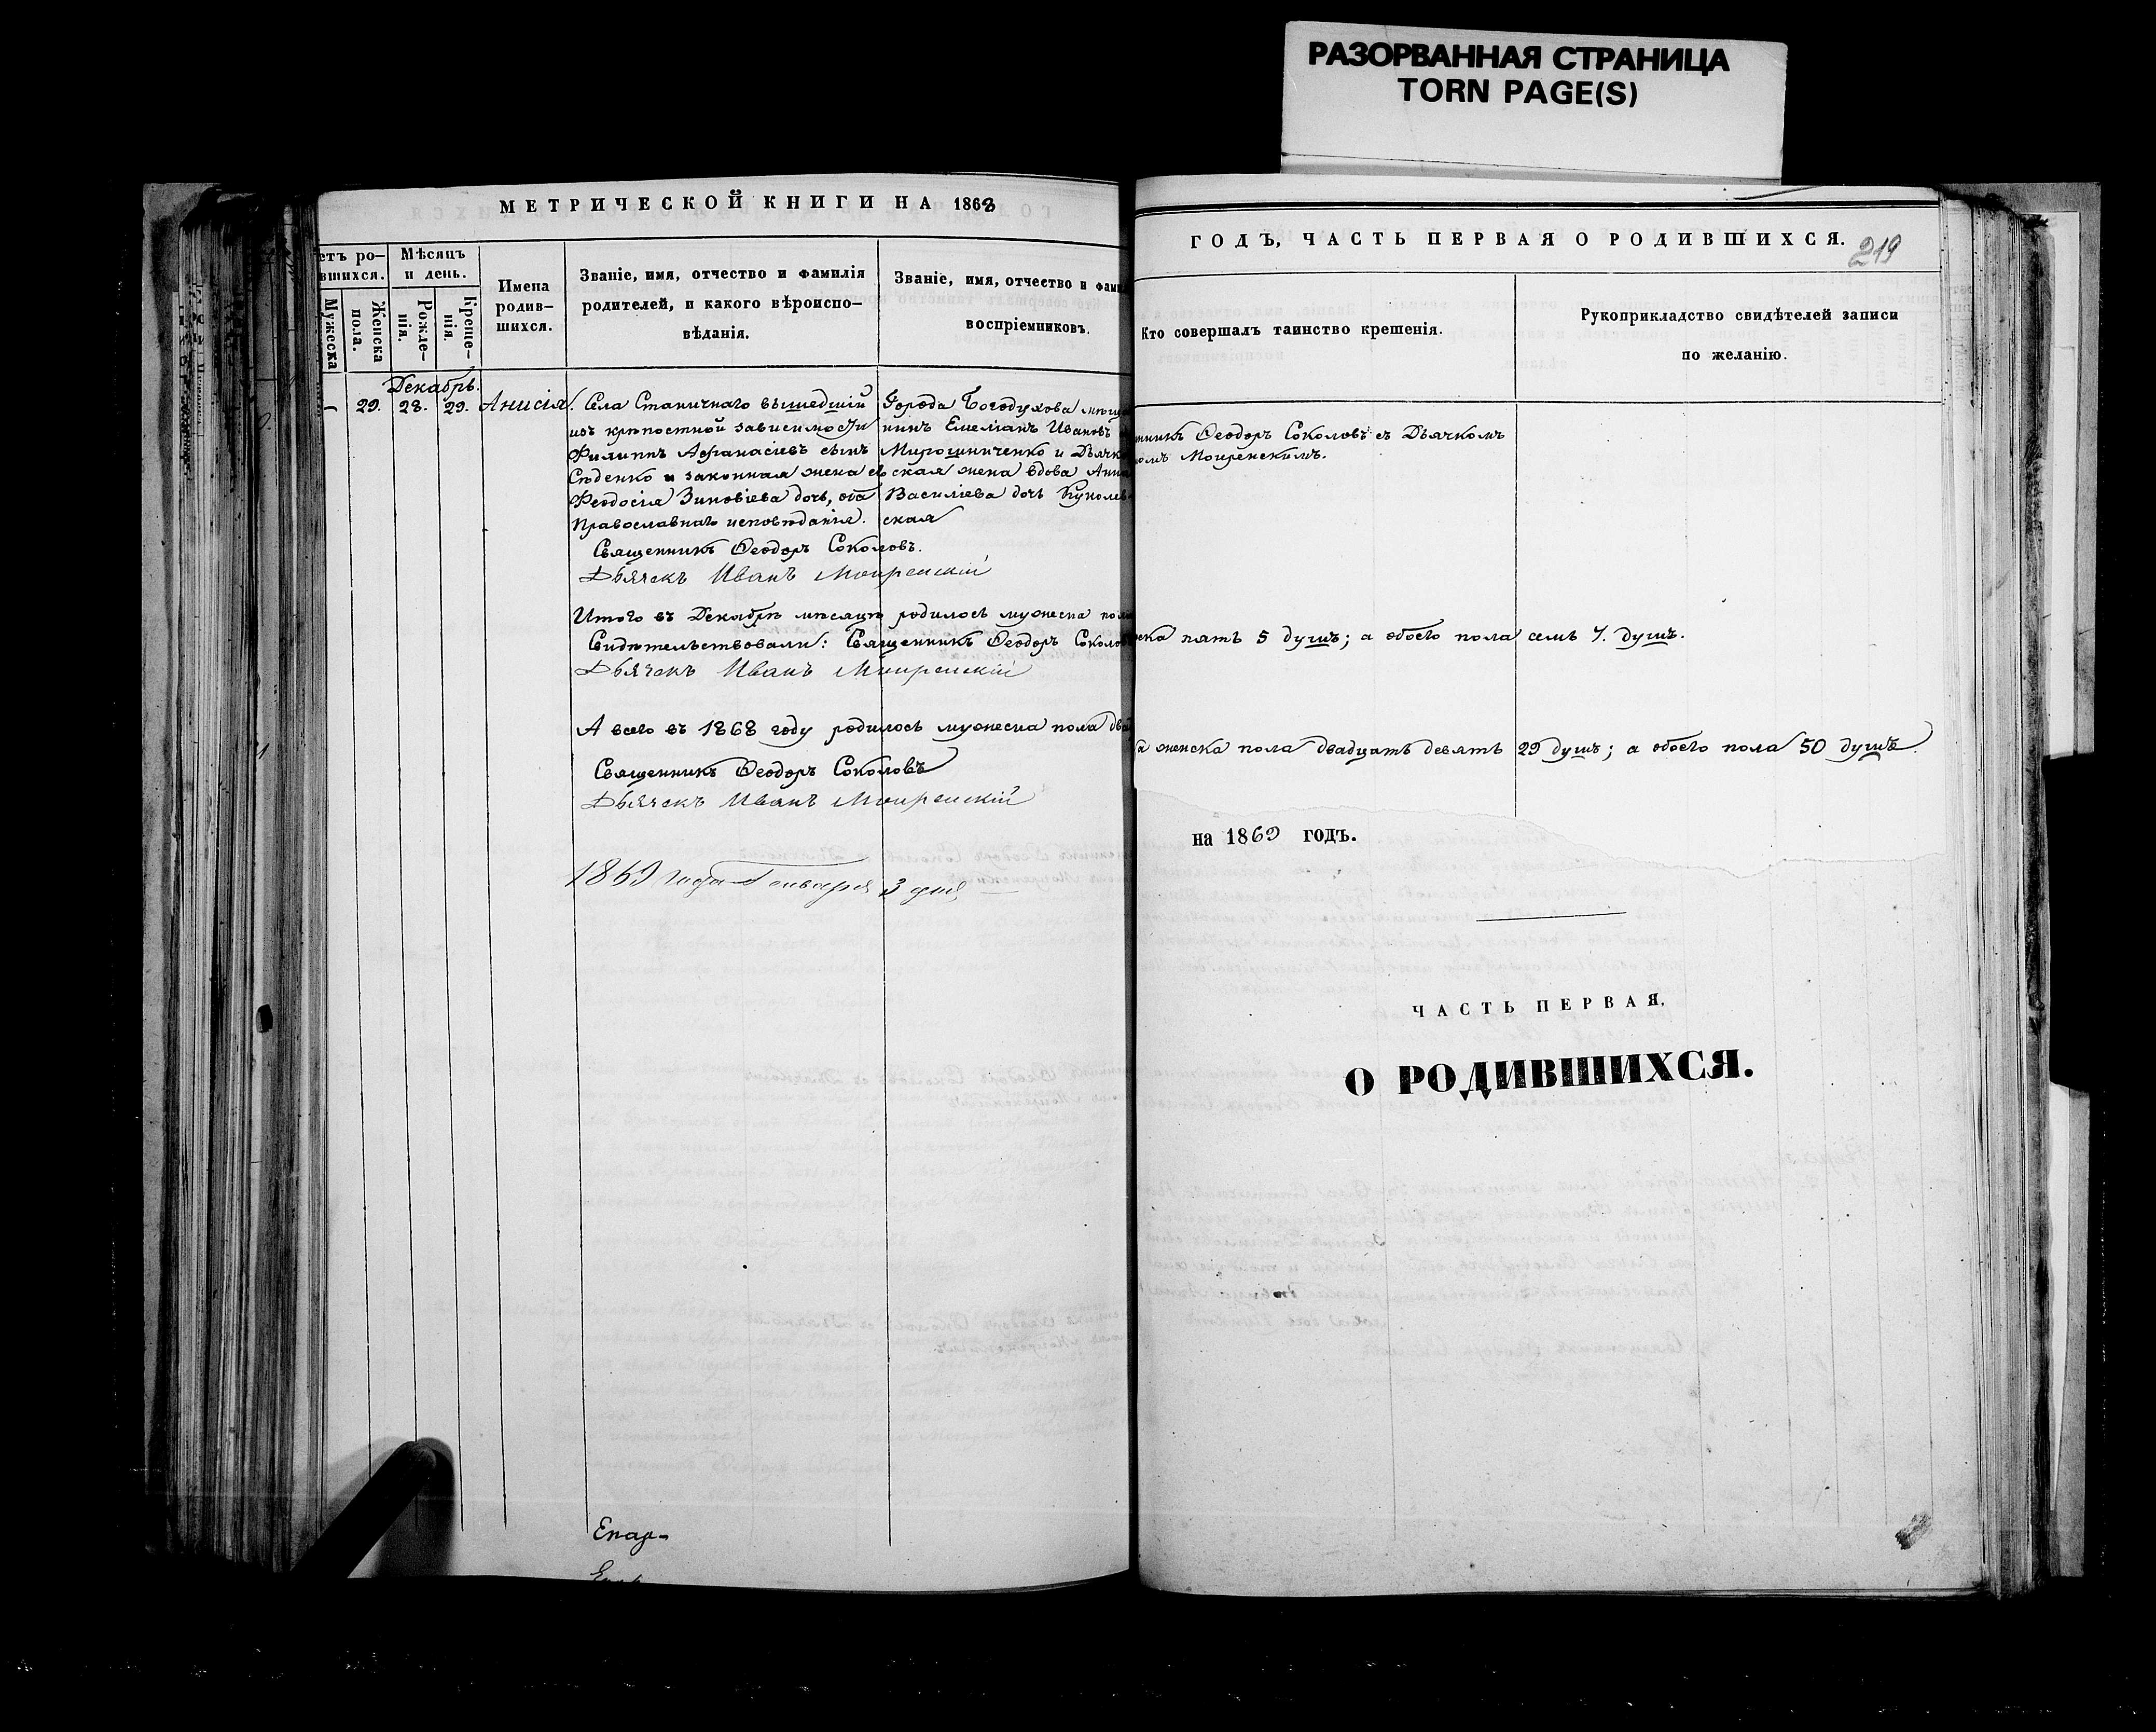 РАЗОРВАННАЯ СТРАНИЦА
TORN PAGE(S)
МЕТРИЧЕСКОЙ КНИГИ НА 1868
етъ ро-
вшихся.
Мужеска
Женска
пола.
Мѣсяцъ
и день.
Рожде-
нія.
Креще-
нія.
Имена
родив-
шихся.
Званіе, имя, отчество и фамилія
родителей, и какого вѣроиспо-
вѣданія.
Званіе, имя, отчество и фами
воспріемниковъ.
Декабрь.
29. 28. 29. Анисія.
Села Станичнаго вышедшій
изъ крѣпостной зависимости
Филиппъ Афанасіевъ сынъ
Сѣденко и законная жена его
Феодосія Зиновіева дочь, оба
Православнаго исповѣданія.
Города Богодухова мѣща
нинъ Емеліанъ Ивановъ
Мирошниченко и Дьячко
ская жена вдова Анна
Василіева дочь Куколев
ская
Священникъ Ѳеодоръ Соколовъ.
Дьячекъ Иванъ Мощенскій
Итого въ Декабрѣ мѣсяцѣ родилось мужеска пола
Свидѣтельствовали: Священникъ Ѳеодоръ Соколовъ
Дьячекъ Иванъ Мощенскій
А всего въ 1868 году родилось мужеска пола два
Священникъ Ѳеодоръ Соколовъ
Дьячекъ Иванъ Мощенскій
1869 года Января 3 дня
Епар-
ГОДЪ, ЧАСТЬ ПЕРВАЯ О РОДИВШИХСЯ.
219
Кто совершалъ таинство крешенія.
Рукоприкладство свидѣтелей записи
по желанію.
нникъ Ѳеодоръ Соколовъ съ Дьячкомъ
омъ Мощенскимъ.
ска пять 5 душъ; а обоего пола семь 7. душъ.
а женска пола двадцать девять 29 душъ; а обоего пола 50 душъ.
на 1869 годъ.
ЧАСТЬ ПЕРВАЯ,
О РОДИВШИХСЯ.